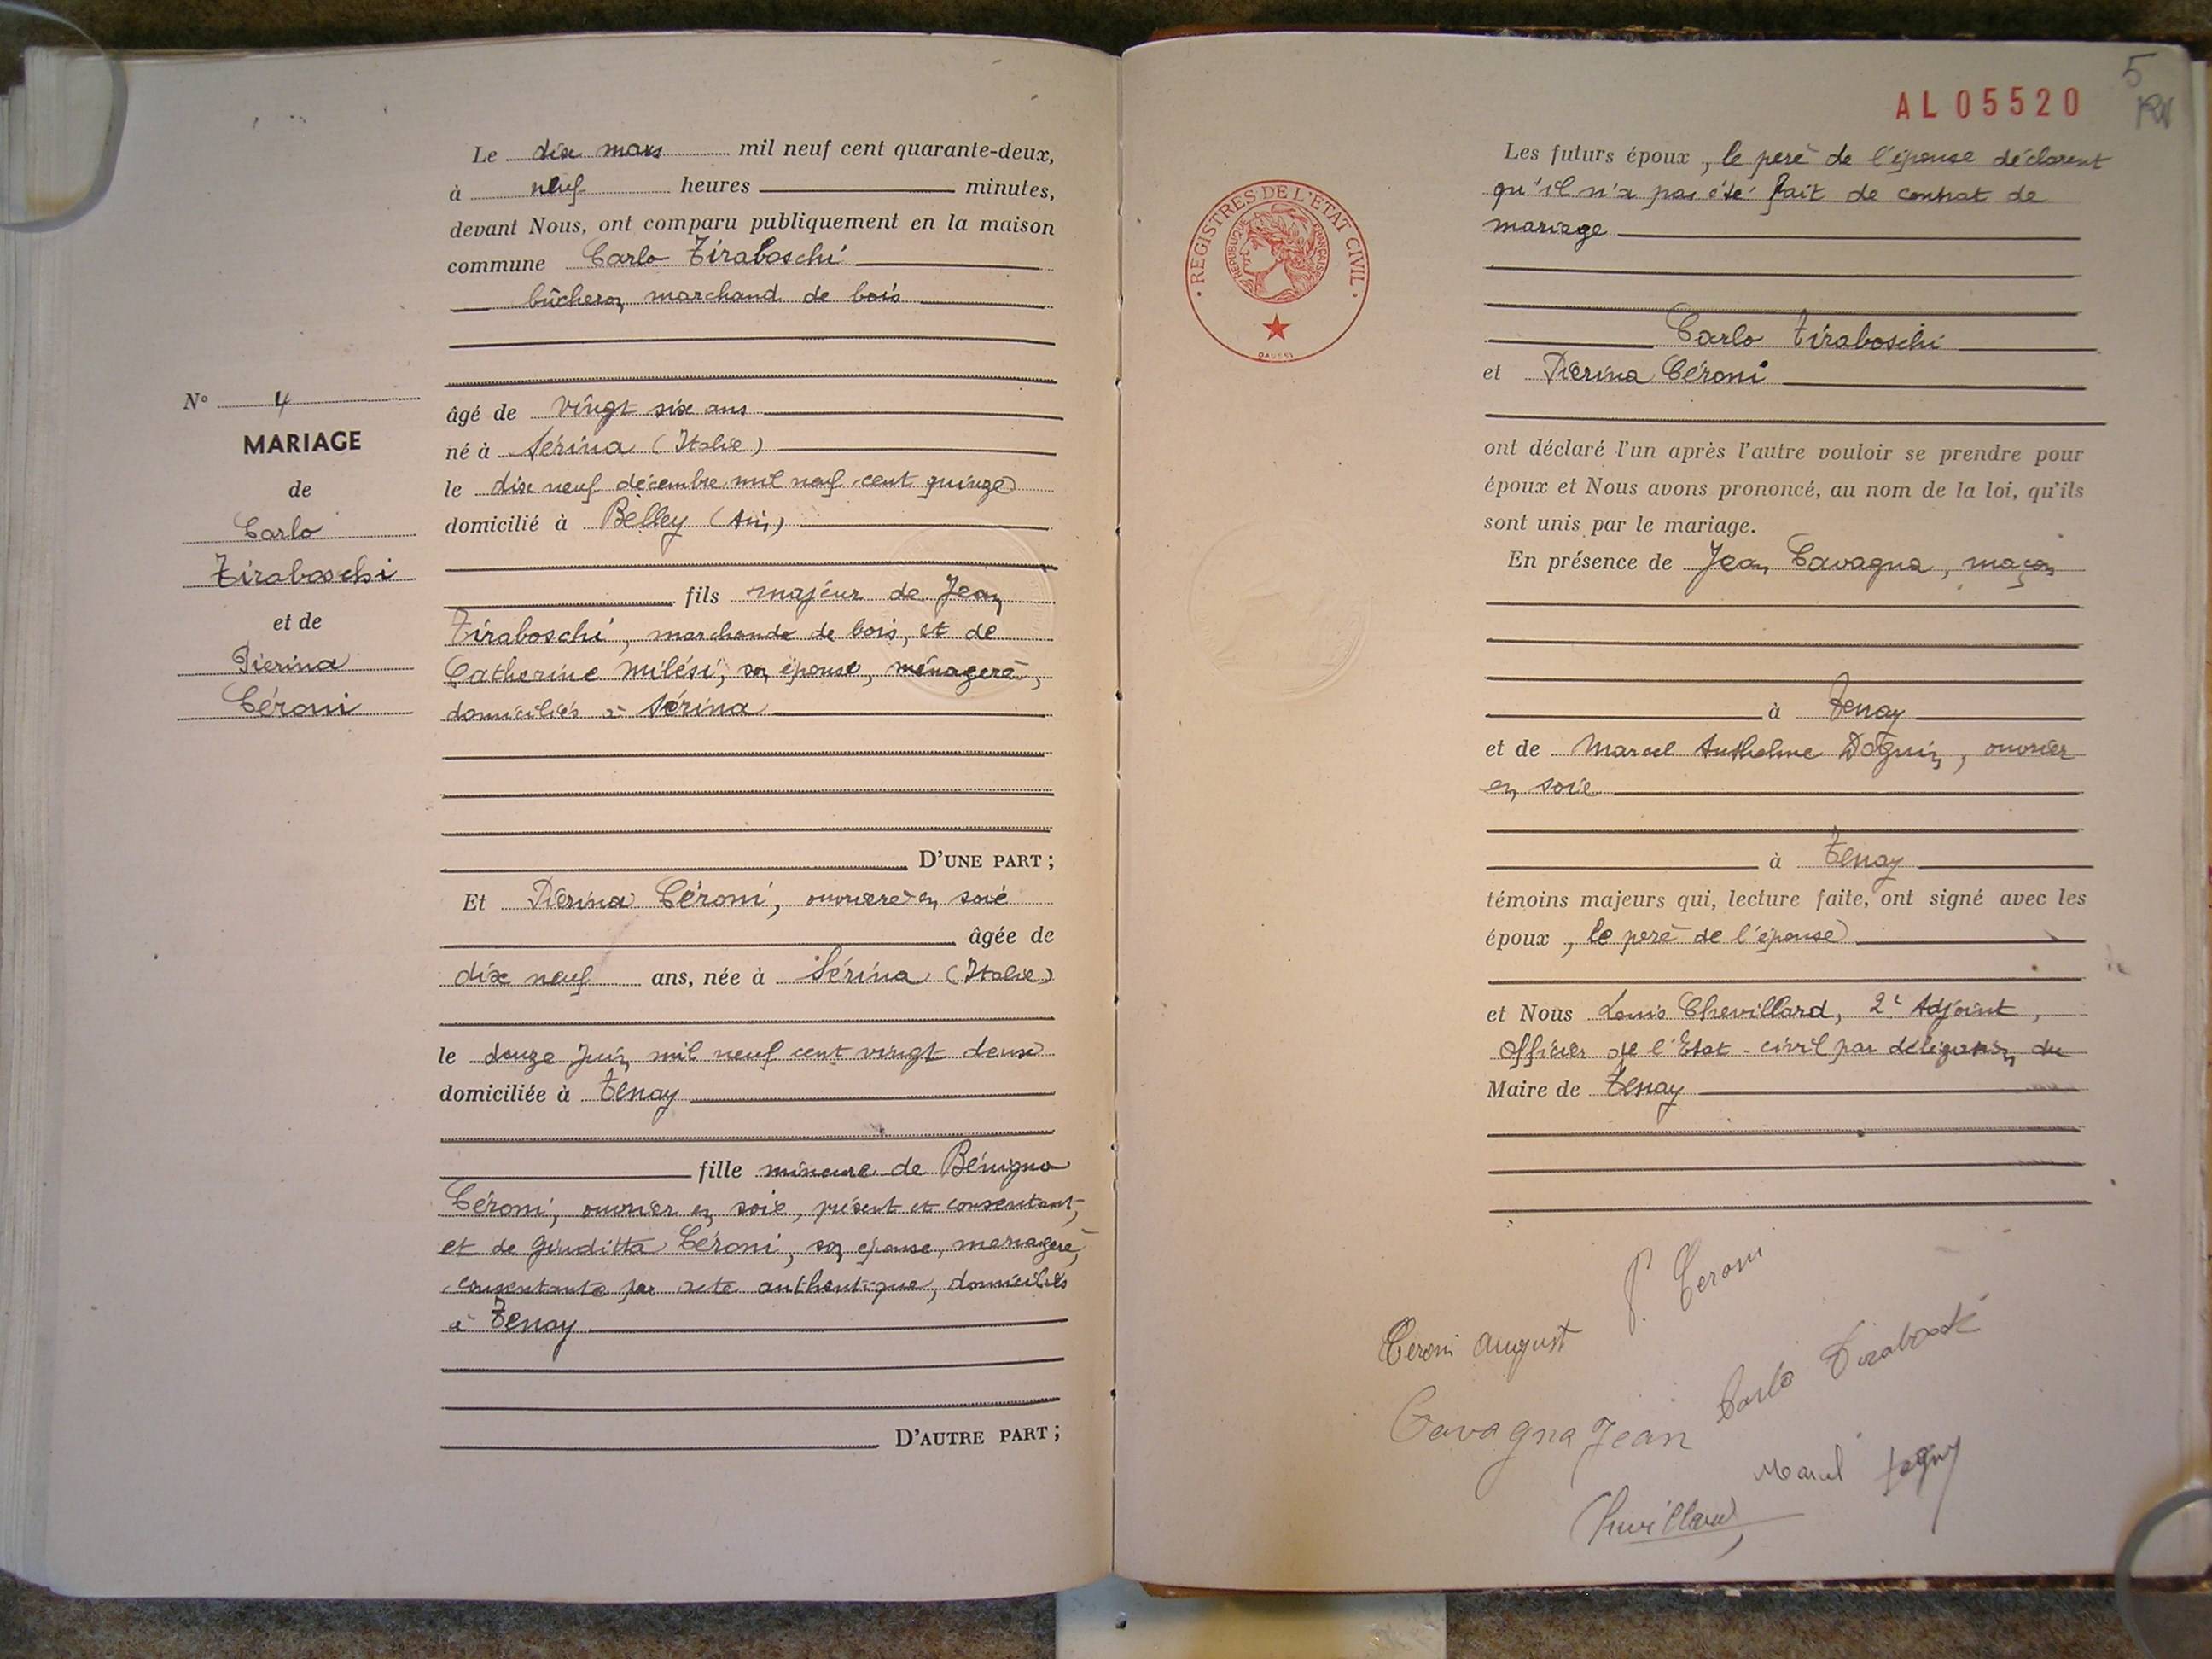 Le dix mars mil neuf cent quarante-deux,
à neuf heures minutes,
devant Nous, ont comparu publiquement en la maison
commune Carlo Tiraboschi
bûcheron marchand de bois
âgé de vingt six ans
né à Sérina (Italie)
le dix neuf décembre mil neuf cent quinze
domicilié à Belley (Ain)
fils majeur de Jean
Tiraboschi, marchande de bois, et de
Catherine Milési, son épouse, ménagère,
domiciliés à Sérina
D'UNE PART ;
N° 4
MARIAGE
de
Carlo
Tiraboschi
et de
Pierina
Céroni
Et Pierina Céroni, ouvrière en soie
âgée de
dix neuf ans, née à Sérina (Italie)
le douze Juin mil neuf cent vingt deux
domiciliée à Tenay
fille mineure de Bénigno
Céroni, ouvrier en soie, présent et consentant,
et de Giuditta Céroni, son épouse, ménagère,
consentante par acte authentique, domiciliés
à Tenay
D'AUTRE PART ;
AL 05520
5
REGISTRES DE L'ETAT CIVIL
REPUBLIQUE FRANÇAISE
Les futurs époux, le père de l'épouse déclarent
qu'il n'a pas été fait de contrat de
mariage
Carlo Tiraboschi
et Pierina Céroni
ont déclaré l'un après l'autre vouloir se prendre pour
époux et Nous avons prononcé, au nom de la loi, qu'ils
sont unis par le mariage.
En présence de Jean Cavagna, maçon
à Tenay
et de Marcel Anthelme Doguin, ouvrier
en soie
à Tenay
témoins majeurs qui, lecture faite, ont signé avec les
époux, le père de l'épouse
et Nous Louis Chevillard, 2e Adjoint,
Officier de l'Etat-civil par délégation du
Maire de Tenay
P. Ceroni
Ceroni August
Carlo Tiraboschi
Cavagna Jean
Marcel
Chevillard